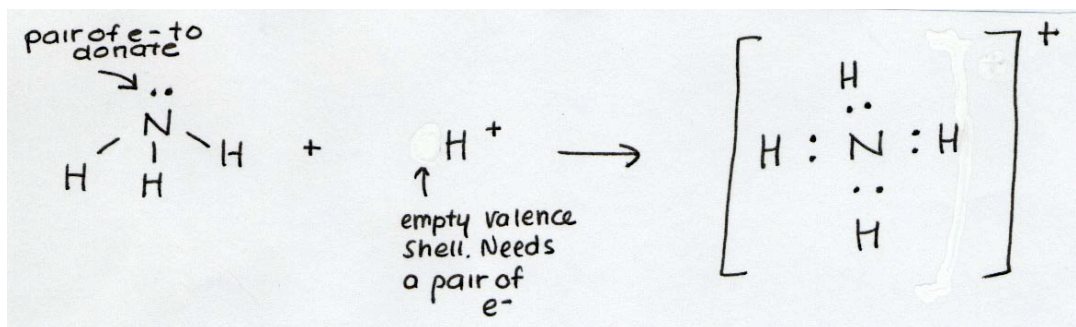 pair of e- to
donate
..
N
H H H
+
H+
→
empty valence
shell. Needs
a pair of
e-
[ ]+
H
..
H : N : H
..
H